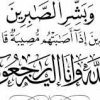 وَبَشِّرِ الصَّابِرِينَ
الَّذِينَ إِذَا أَصَابَتْهُمْ مُصِيبَةٌ قَا
لِلَّهِ وَإِنَّا إِلَيْهِ رَاجِعُو